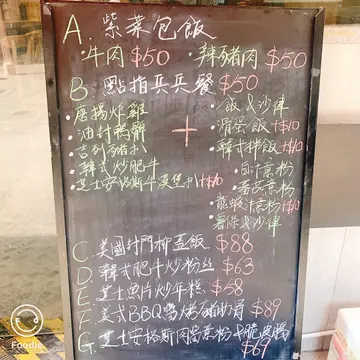 A. 紫菜包飯
牛肉 $50 辣豬肉 $50
B. 點指兵兵餐 $50
·唐揚炸雞
·油封鴨髀
·吉列豬扒
·韓式炒肥牛
·芝士安格斯牛漢堡扒+$10
+
·飯 & 沙律
·滑蛋飯+$10
·韓式拌飯+$10
·自汁意粉
·蕃茄意粉
·意粉+$10
·薯條&沙律
C. 美國封門柳蓋飯 $88
D. 韓式肥牛炒粉絲 $63
E. 芝士魚片炒年糕 $58
F. 美式BBQ豬肋骨 $89
G. 芝士安格斯肉醬意粉
$69
Foodie